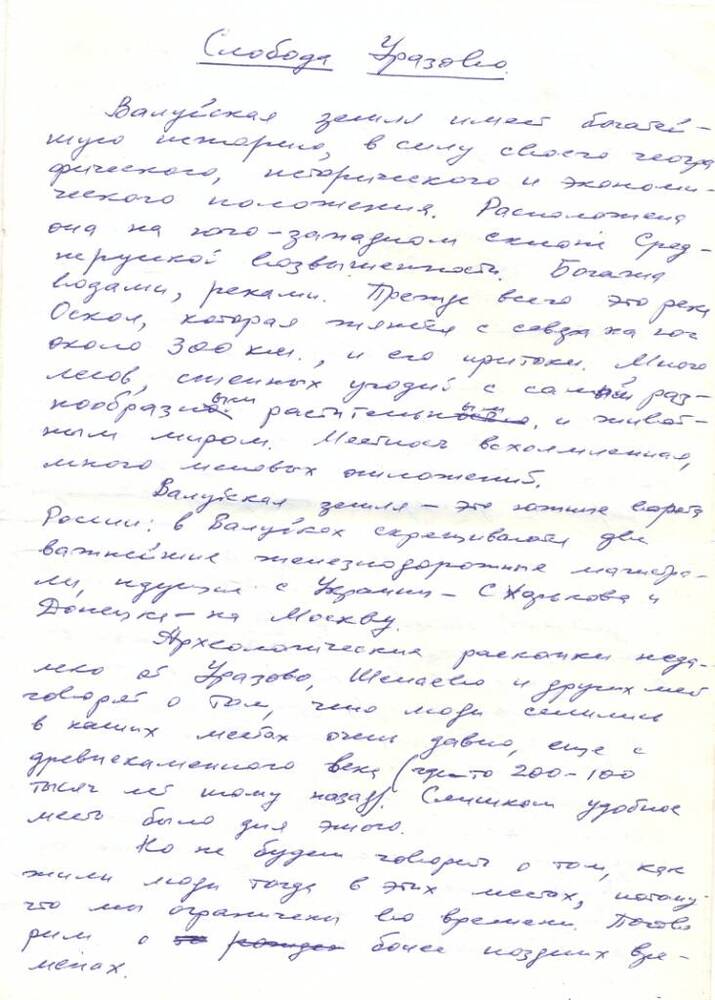 Слобода Уразово.
Валуйская земля имеет богатей-
шую историю, в силу своего геогра
фического, исторического и экономи-
ческого положения. Расположена
она на юго-западном склоне Сред-
нерусской возвышенности. Богата
водами, реками. Прежде всего это река
Оскол, которая тянется с севера на юг
около 300 км., и его притоки. Много
лесов, степных угодий с самым раз-
нообразным растительным, и живот-
ным миром. Местность всхолмленная,
много меловых отложений.
Валуйская земля – это южные ворота
России: в Валуйках скрещиваются две
важнейшие железнодорожные магистра-
ли, идущие с Украины – с Харькова и
Донецка – на Москву.
Археологические раскопки неда-
леко от Уразово, Шелаево и других мест
говорят о том, что люди селились
в наших местах очень давно, еще с
древнекаменного века (где-то 200-100
тысяч лет тому назад). Слишком удобное
место было для этого.
Но не будем говорить о том, как
жили люди тогда в этих местах, потому
что мы ограничены во времени. Погово
рим о более поздних вре-
менах.